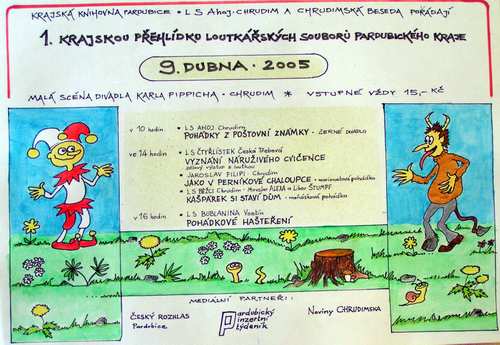 KRAJSKÁ KNIHOVNA PARDUBICE • LS AHOJ-CHRUDIM A CHRUDIMSKÁ BESEDA POŘÁDAJÍ
1. KRAJSKOU PŘEHLÍDKU LOUTKÁŘSKÝCH SOUBORŮ PARDUBICKÉHO KRAJE
9. DUBNA • 2005
MALÁ SCÉNA DIVADLA KARLA PIPPICHA - CHRUDIM * VSTUPNÉ VŽDY 15,- KČ
v 10 hodin • LS AHOJ Chrudim
POHÁDKY Z POŠTOVNÍ ZNÁMKY - ČERNÉ DIVADLO
ve 14 hodin • LS ČTYŘLÍSTEK Česká Třebová
VYZNÁNÍ NÁRUŽIVÉHO CVIČENCE
• JAROSLAV FILIPI Chrudim
JAKO V PERNÍKOVÉ CHALOUPCE - marionetová pohádka
• LS BĚŽCI Chrudim - Miroslav ALEXA a Libor ŠTUMPF
KAŠPÁREK SI STAVÍ DŮM - maňásková pohádka
v 16 hodin • LS BUBLANINA Vsetín
POHÁDKOVÉ HAŠTEŘENÍ
MEDIÁLNÍ PARTNEŘI:
ČESKÝ ROZHLAS
Pardubice
Pardubický
inzertní
týdeník
Noviny CHRUDIMSKA